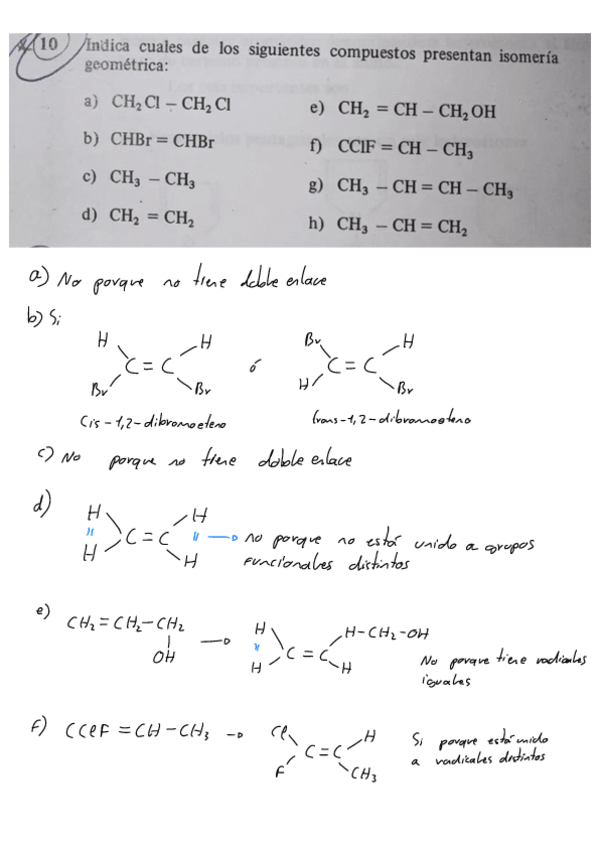 10 Indica cuales de los siguientes compuestos presentan isomería
geométrica:
a) CH₂Cl – CH₂Cl
b) CHBr = CHBr
c) CH₃ – CH₃
d) CH₂ = CH₂
e) CH₂ = CH – CH₂OH
f) CClF = CH – CH₃
g) CH₃ – CH = CH – CH₃
h) CH₃ – CH = CH₂
a) No porque no tiene doble enlace
b) Si
H H
C = C
Br Br
ó
Br H
C = C
H Br
Cis-1,2-dibromoeteno
trans-1,2-dibromoeteno
c) No porque no tiene doble enlace
d)
H H
C = C
H H
no porque no está unido a grupos
funcionales distintos
e) CH₂=CH₂-CH₂
OH
H H-CH₂-OH
C = C
H H
No porque tiene radicales
iguales
F) CClF = CH - CH₃
Cl H
C = C
F CH₃
Si porque está unido
a radicales distintos